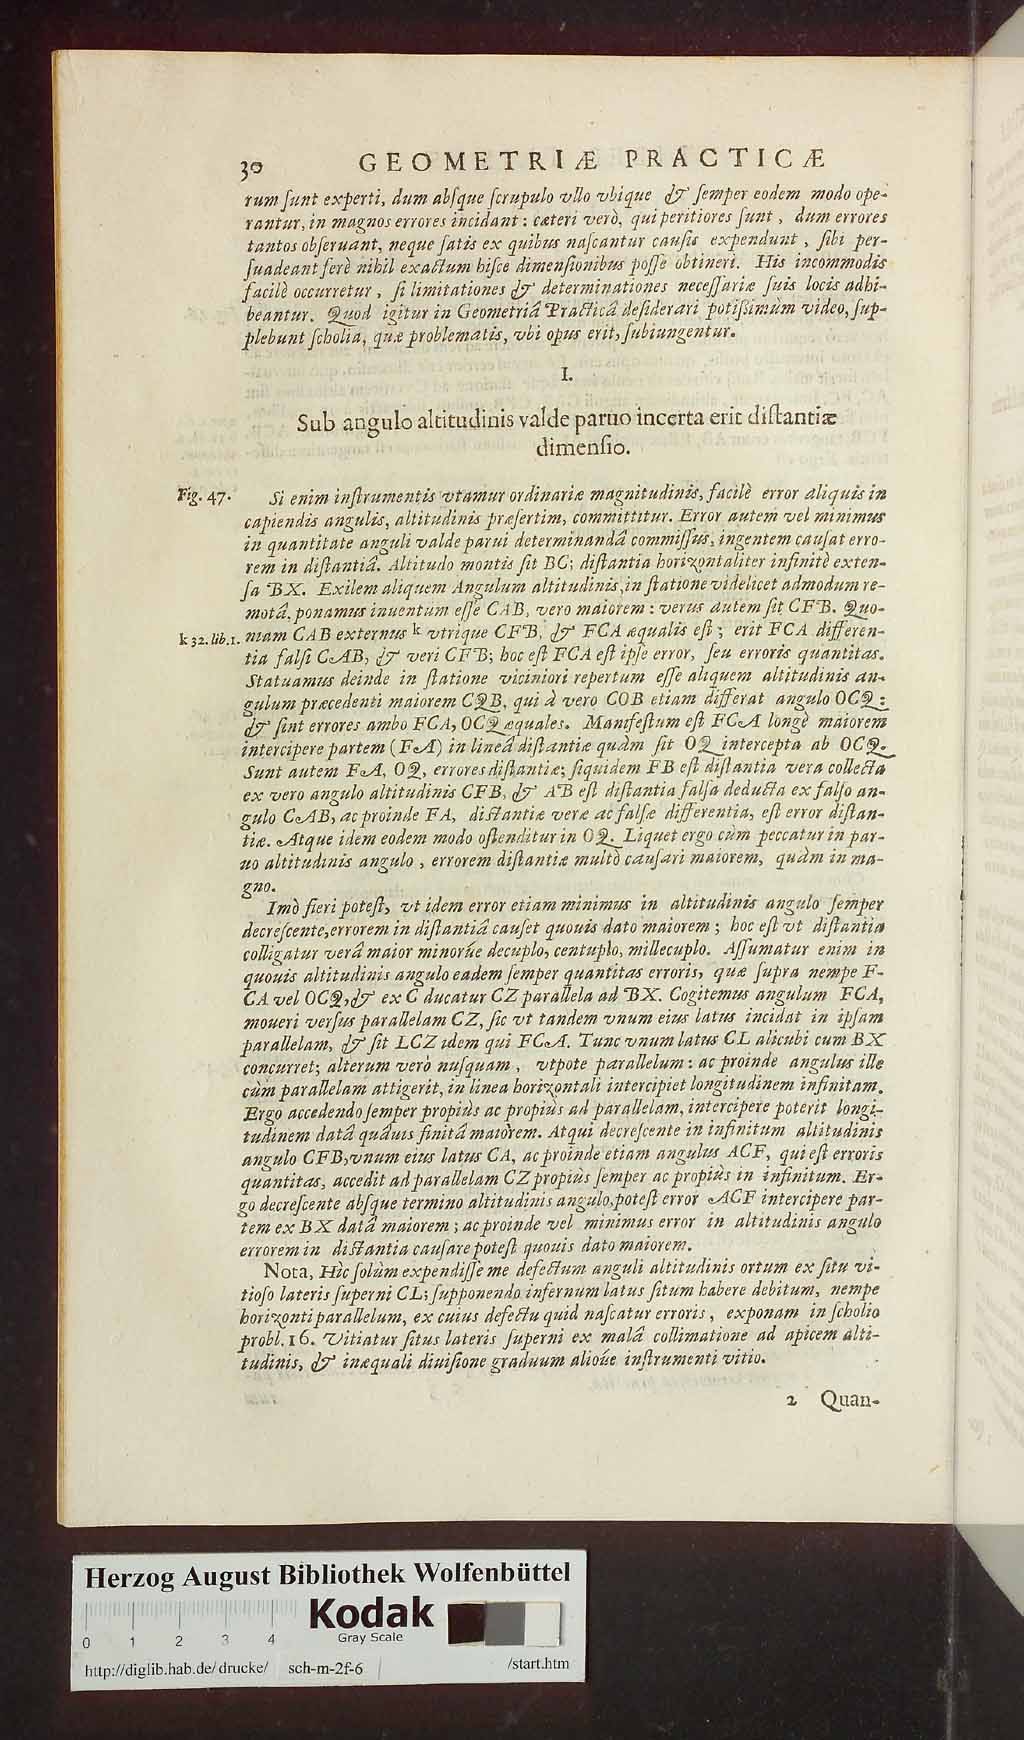 30 GEOMETRIÆ PRACTICÆ
rum ſunt experti, dum abſque ſcrupulo vllo vbique & ſemper eodem modo ope-
rantur, in magnos errores incidant: cæteri verò, qui peritiores ſunt, dum errores
tantos obſeruant, neque ſatis ex quibus naſcantur cauſis expendunt, ſibi per-
ſuadeant ferè nihil exactum hiſce dimenſionibus poſſe obtineri. His incommodis
facilè occurretur, ſi limitationes & determinationes neceſſariæ ſuis locis adhi-
beantur. Quod igitur in Geometriâ Practicâ deſiderari potiſſimùm video, ſup-
plebunt ſcholia, quæ problematis, vbi opus erit, ſubiungentur.
I.
Sub angulo altitudinis valde paruo incerta erit diſtantiæ
dimenſio.
Fig. 47. Si enim inſtrumentis vtamur ordinariæ magnitudinis, facilè error aliquis in
capiendis angulis, altitudinis præſertim, committitur. Error autem vel minimus
in quantitate anguli valde parui determinandâ commiſſus, ingentem cauſat erro-
rem in diſtantiâ. Altitudo montis ſit BC; diſtantia horizontaliter infinitè exten-
ſa BX. Exilem aliquem Angulum altitudinis, in ſtatione videlicet admodum re-
motâ, ponamus inuentum eſſe CAB, vero maiorem: verus autem ſit CFB. Quo-
k 32. lib. 1. niam CAB externus k vtrique CFB, & FCA æqualis eſt; erit FCA differen-
tia falſi CAB, & veri CFB; hoc eſt FCA eſt ipſe error, ſeu erroris quantitas.
Statuamus deinde in ſtatione viciniori repertum eſſe aliquem altitudinis an-
gulum præcedenti maiorem CQB, qui à vero COB etiam differat angulo OCQ:
& ſint errores ambo FCA, OCQ æquales. Manifeſtum eſt FCA longè maiorem
intercipere partem (FA) in lineâ diſtantiæ quàm ſit OQ intercepta ab OCQ.
Sunt autem FA, OQ, errores diſtantiæ; ſiquidem FB eſt diſtantia vera collecta
ex vero angulo altitudinis CFB, & AB eſt diſtantia falſa deducta ex falſo an-
gulo CAB, ac proinde FA, diſtantiæ veræ ac falſæ differentia, eſt error diſtan-
tiæ. Atque idem eodem modo oſtenditur in OQ. Liquet ergo cùm peccatur in par-
uo altitudinis angulo, errorem diſtantiæ multò cauſari maiorem, quàm in ma-
gno.
Imò fieri poteſt, vt idem error etiam minimus in altitudinis angulo ſemper
decreſcente, errorem in diſtantiâ cauſet quouis dato maiorem; hoc eſt vt diſtantia
colligatur verâ maior minorúe decuplo, centuplo, millecuplo. Aſſumatur enim in
quouis altitudinis angulo eadem ſemper quantitas erroris, quæ ſupra nempe F-
CA vel OCQ, & ex C ducatur CZ parallela ad BX. Cogitemus angulum FCA,
moueri verſus parallelam CZ, ſic vt tandem vnum eius latus incidat in ipſam
parallelam, & ſit LCZ idem qui FCA. Tunc vnum latus CL alicubi cum BX
concurret; alterum verò nuſquam, vtpote parallelum: ac proinde angulus ille
cùm parallelam attigerit, in linea horizontali intercipiet longitudinem infinitam.
Ergo accedendo ſemper propiùs ac propiùs ad parallelam, intercipere poterit longi-
tudinem datâ quâuis finitâ maiorem. Atqui decreſcente in infinitum altitudinis
angulo CFB, vnum eius latus CA, ac proinde etiam angulus ACF, qui eſt erroris
quantitas, accedit ad parallelam CZ propiùs ſemper ac propiùs in infinitum. Er-
go decreſcente abſque termino altitudinis angulo, poteſt error ACF intercipere par-
tem ex BX datâ maiorem; ac proinde vel minimus error in altitudinis angulo
errorem in diſtantia cauſare poteſt quouis dato maiorem.
Nota, Hìc ſolùm expendiſſe me defectum anguli altitudinis ortum ex ſitu vi-
tioſo lateris ſuperni CL; ſupponendo infernum latus ſitum habere debitum, nempe
horizonti parallelum, ex cuius defectu quid naſcatur erroris, exponam in ſcholio
probl. 16. Vitiatur ſitus lateris ſuperni ex malâ collimatione ad apicem alti-
tudinis, & inæquali diuiſione graduum alioúe inſtrumenti vitio.
2 Quan-
Herzog August Bibliothek Wolfenbüttel
Kodak
Gray Scale
0 1 2 3 4
http://diglib.hab.de/drucke/ sch-m-2f-6 /start.htm